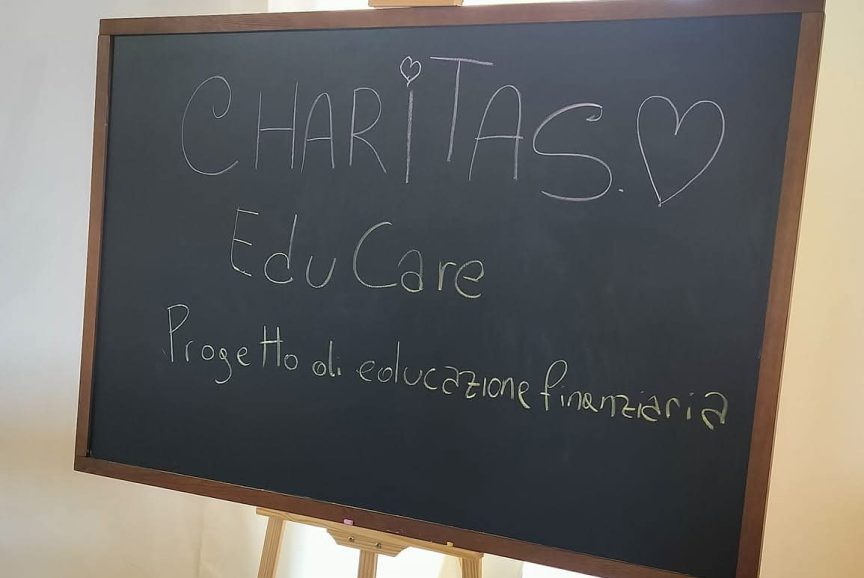 CHARiTAS.
EduCare
Progetto di educazione finanziaria